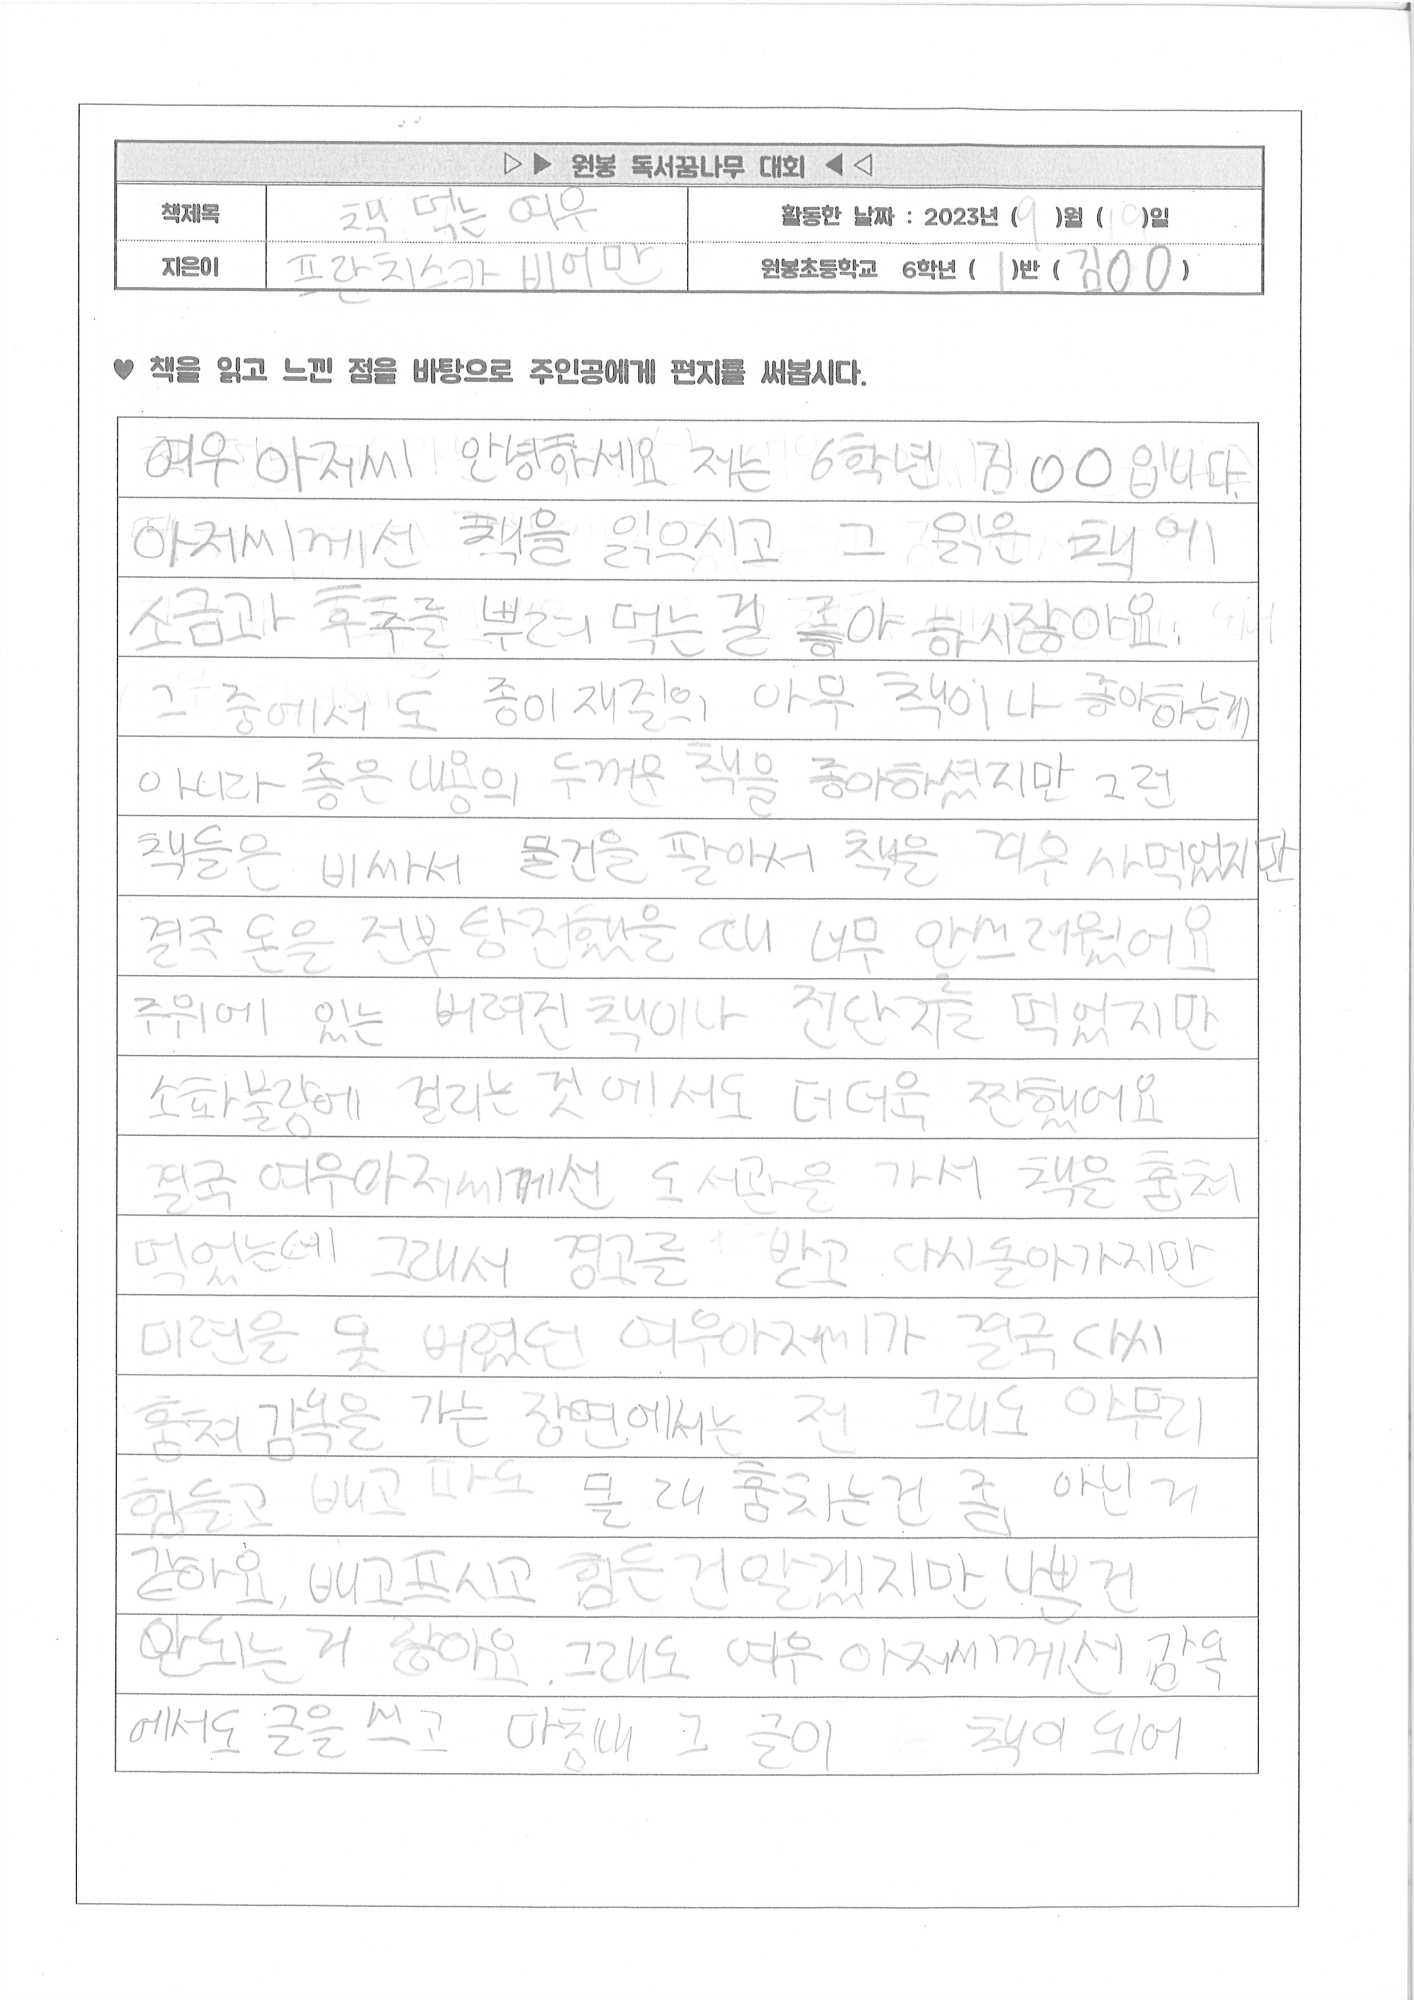 ▷▶ 원봉 독서꿈나무 대회 ◀◁
책제목 책 먹는 여우 활동한 날짜 : 2023년 (9)월 (19)일
지은이 프란치스카 비어만 원봉초등학교 6학년 (1)반 (김OO)
♥ 책을 읽고 느낀 점을 바탕으로 주인공에게 편지를 써봅시다.
여우 아저씨 안녕하세요 저는 6학년 김OO입니다.
아저씨께선 책을 읽으시고 그 읽은 책에
소금과 후추를 뿌려 먹는걸 좋아 하시잖아요.
그 중에서도 종이재질의 아무 책이나 좋아하는게
아니라 좋은 내용의 두꺼운 책을 좋아하셨지만 그런
책들은 비싸서 물건을 팔아서 책을 겨우 사먹었지만
결국 돈을 전부 탕진했을 때 너무 안쓰러웠어요
주위에 있는 버려진 책이나 전단지를 먹었지만
소화불량에 걸리는 것에서도 더더욱 짠했어요
결국 여우아저씨께선 도서관을 가서 책을 훔쳐
먹었는데 그래서 경고를 받고 다시돌아가지만
미련을 못 버렸던 여우아저씨가 결국 다시
훔쳐 감옥을 가는 장면에서는 전 그래도 아무리
힘들고 배고파도 몰래 훔치는건 좀 아닌거
같아요. 배고프시고 힘든건 알겠지만 나쁜건
안되는 거 랑아요. 그래도 여우 아저씨께선 감옥
에서도 글을 쓰고 마침내 그 글이 책이 되어